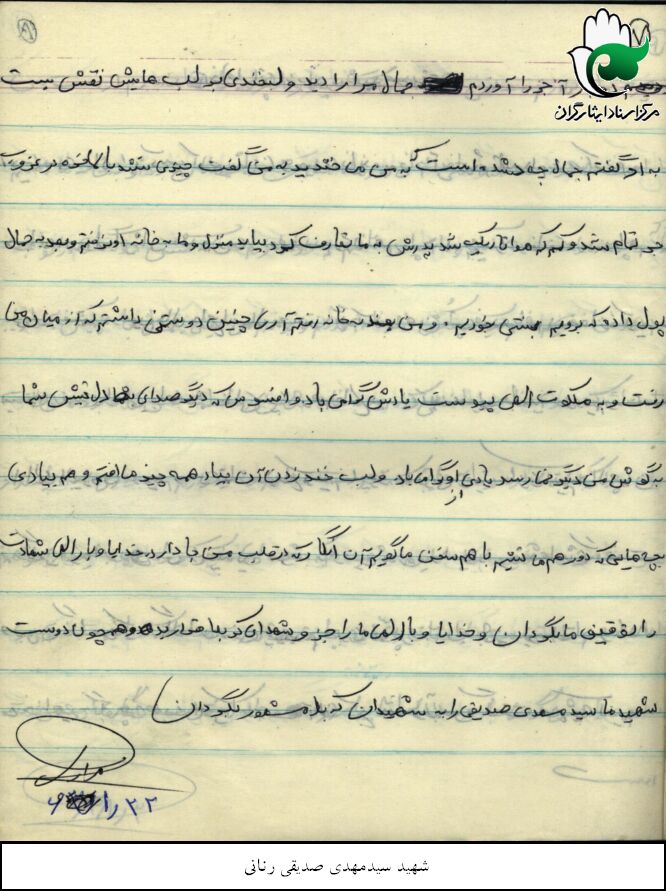 مرکز اسناد ایثارگران
آجر را آوردم جمال مرا دید و لبخندی بر لب هایش نقش بست
به او گفتم جمال چه شده است که به من می خندید به من گفت چیزی نشد بالاخره در غروب
تمام شد و کم کم هوا تاریک شد پدرش به ما تعارف کرد بیاید منزل و ما به خانه او نرفتم و بعد به جمال
پول داد و که برویم بستنی خوریم. و من بعد به خانه رفتم آری چنین دوستی داشتم که از میان من
رفت و به ملکوت الهی پیوست یادش گرامی باد و افسوس که دیگر صدای دل نشین شما
به گوش من دیگر نمی رسد یادی از او گرامی باد و لب خند زدن آن بیاد همه چیز ما افتم و هم بیادی
بچه هایی که دور هم می نشتیم با هم سخن ما گویم آن که در قلب من جا دارد خدایا و بار الهی شهادت
را نصیب ما بگردان و خدایا و بار الهی ما را جز و شهدای کربلا قرار بده و همچون دوست
شهید ما سید مهدی صدیقی را به شهیدان کربلا محشور بگردان
شهید سیدمهدی صدیقی رنانی